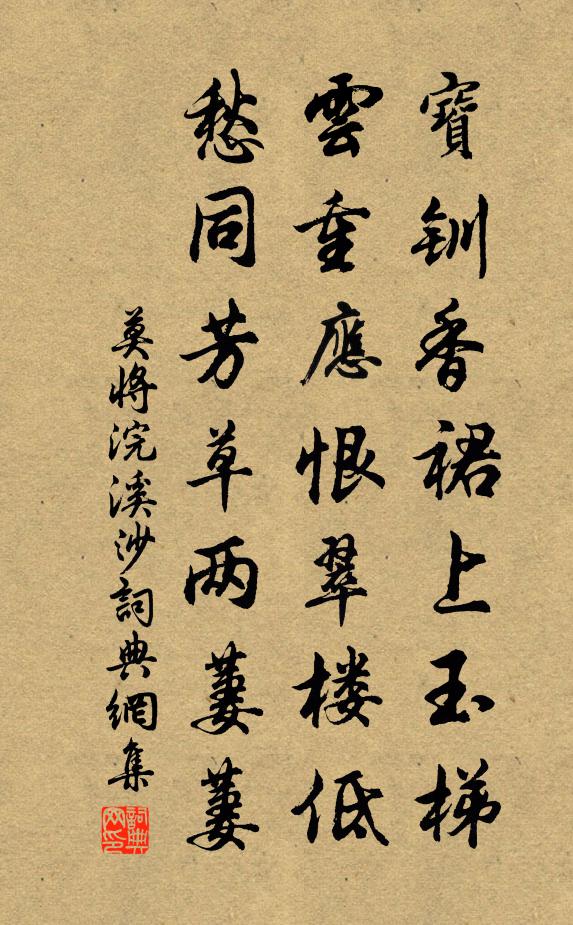 寶钏香裙上玉梯
雲重應恨翠楼低
愁同芳草两萋萋
莫將浣溪沙詞典網集
詞典网印